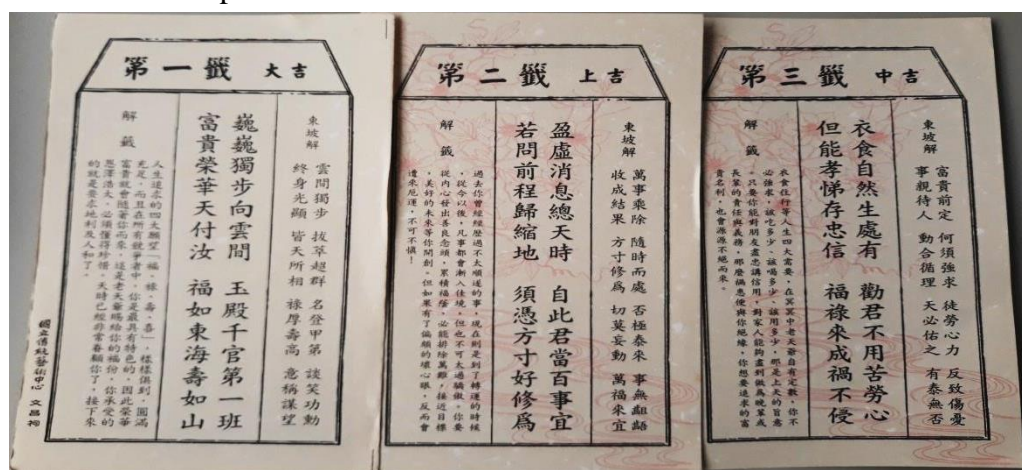 第一籤 大吉
東坡解
雲間獨步 拔萃超群 名登甲第 談笑功勳
終身光顯 皆天所相 祿厚壽高 意稱謀望
巍巍獨步向雲間 玉殿千官第一班
富貴榮華天付汝 福如東海壽如山
解籤
人生追求的四大願望「福、祿、壽、喜」,樣樣俱到,圓滿
充足,而且在所有競爭者中,你是最具有特色的,因此榮華
富貴就會隨著你而來,這是老天爺賜給你的福份,你承受的
恩澤浩大,必須懂得珍惜,天時已經非常眷顧你了,接下來
的就是要求地利及人和了。
國立傳統藝術中心 文昌祠
第二籤 上吉
東坡解
萬事乘除 隨時而處 否極泰來 事無齟齬
收成結果 方寸修為 切莫妄動 萬福來宜
盈虛消息總天時 自此君當百事宜
若問前程歸縮地 須憑方寸好修為
解籤
過去你曾經歷過不太順遂的事,現在則是到了轉運的時候
,從今以後,凡事都會漸入佳境,但也不可太過驕傲。你要
從內心發出善良念頭,累積福蔭,必能排除萬難,接近目標
,美好的未來等你開創。但如果有了偏頗的壞心眼,反而會
遭來厄運,不可不慎!
第三籤 中吉
東坡解
富貴前定 何須強求 徒勞心力 反致傷憂
事親待人 動合循理 天必佑之 有泰無否
衣食自然生處有 勸君不用苦勞心
但能孝悌存忠信 福祿來成禍不侵
解籤
衣食住行等人生四大需要,在冥冥中老天爺自有定數,你不
必強求,該吃多少、該喝多少、該用多少,那是上天的旨意
。只要你能對朋友盡忠講信用,對家人能夠盡到做為晚輩或
長輩的責任與義務,那麼禍患便與你絕緣,你想要追求的富
貴名利,也會源源不絕而來。